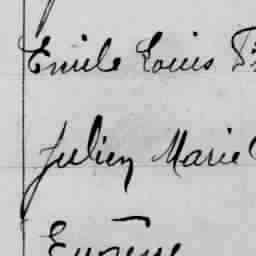 Emile Louis
Julien Marie
Eugène